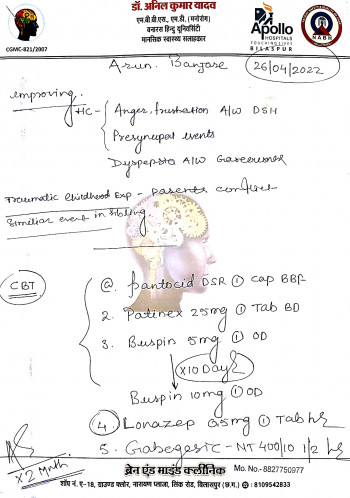 डॉ. अनिल कुमार यादव
एम.बी.बी.एस., एम.डी. (मनोरोग)
बनारस हिन्दू यूनिवर्सिटी
मानसिक स्वास्थ्य सलाहकार
CGMC-821/2007
Apollo
HOSPITALS
TOUCHING LIVES
BILASPUR
NABH
Arun. Banjare
26/04/2022
improving.
H/C - Anger, frustration A/W DSH
events
Dyspepsia A/W
Traumatic Childhood Exp - parents conflict
Similiar event in sibling.
CBT
@. pantocid DSR ① cap BBF
2. 25mg ① Tab BD
3. Buspin 5mg ① OD
X10 Days
Buspin 10mg ① OD
4. Lonazep 0.5mg ① Tab hs
5. Gabegesic - NT 400/10 1/2 hs
X2 Mnth
ब्रेन एंड माइंड क्लीनिक Mo. No.- 8827750977
शॉप नं. ए-18, ग्राउण्ड फ्लोर, नारायण प्लाजा, लिंक रोड, बिलासपुर (छ.ग.) : 8109542833